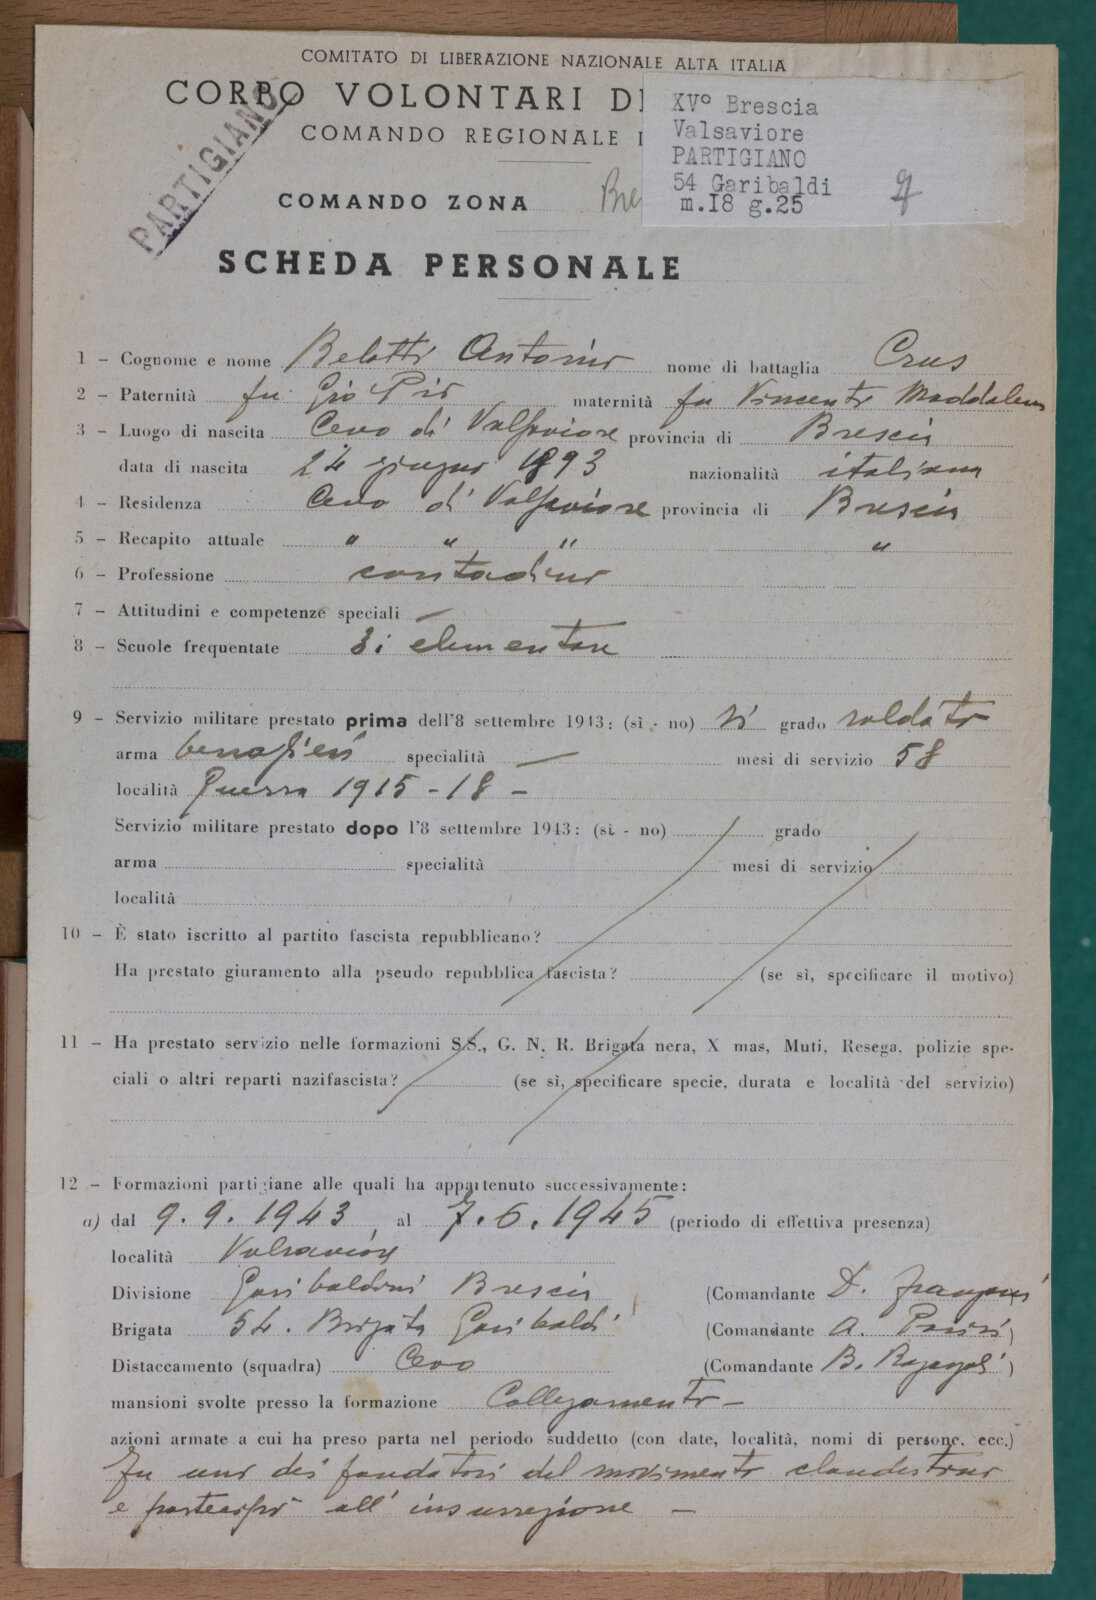 COMITATO DI LIBERAZIONE NAZIONALE ALTA ITALIA
CORPO VOLONTARI D
COMANDO REGIONALE
PARTIGIANO
XVº Brescia
Valsaviore
PARTIGIANO
54 Garibaldi
m.I8 g.25
COMANDO ZONA Bre
SCHEDA PERSONALE
1 - Cognome e nome Belotti Antonio nome di battaglia Crus
2 - Paternità fu Gio Pio maternità fu Vincenti Maddalena
3 - Luogo di nascita Cevo di Valsaviore provincia di Brescia
data di nascita 24 giugno 1893 nazionalità italiana
4 - Residenza Cevo di Valsaviore provincia di Brescia
5 - Recapito attuale " " " "
6 - Professione contadino
7 - Attitudini e competenze speciali —
8 - Scuole frequentate 3i elementare
9 - Servizio militare prestato prima dell'8 settembre 1943: (sì - no) sì grado soldato
arma bersaglieri specialità — mesi di servizio 58
località Guerra 1915-18 -
Servizio militare prestato dopo l'8 settembre 1943: (sì - no) grado
arma specialità mesi di servizio
località
10 - È stato iscritto al partito fascista repubblicano?
Ha prestato giuramento alla pseudo repubblica fascista? (se sì, specificare il motivo)
11 - Ha prestato servizio nelle formazioni S.S., G. N. R. Brigata nera, X mas, Muti, Resega, polizie spe-
ciali o altri reparti nazifascista? (se sì, specificare specie, durata e località del servizio)
12 - Formazioni partigiane alle quali ha appartenuto successivamente:
a) dal 9.9.1943 al 7.6.1945 (periodo di effettiva presenza)
località Valsaviore
Divisione Garibaldini Brescia (Comandante D.
Brigata 54. Brigata Garibaldi (Comandante A. Parisi)
Distaccamento (squadra) Cevo (Comandante B. Bazzana)
mansioni svolte presso la formazione Collegamento -
azioni armate a cui ha preso parte nel periodo suddetto (con date, località, nomi di persone, ecc.)
Fu uno dei fondatori del movimento clandestino
e partecipò all'insurrezione -